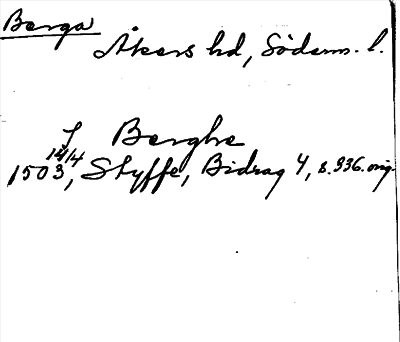 Berga
Åkers hd, Söderm. l.
J Berghe
1503 14/4, Styffe, Bidrag 4, s. 336. orig.